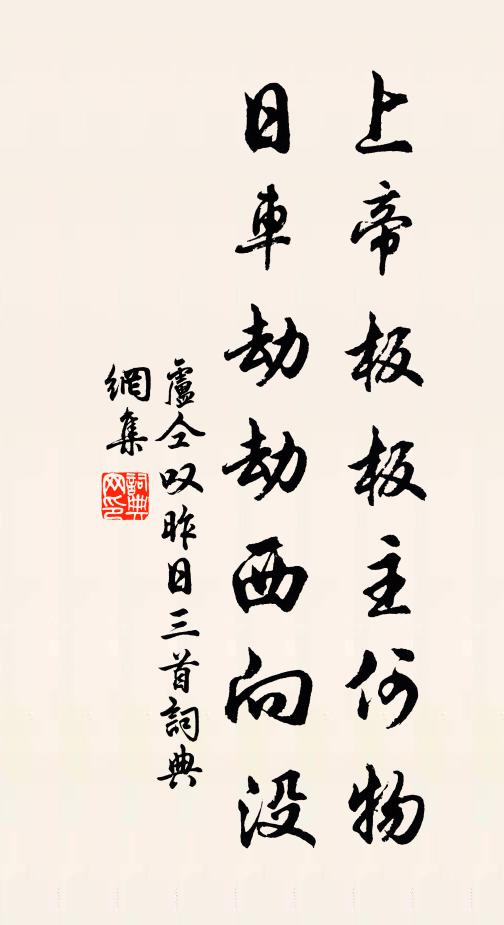 上帝板板主何物
日車劫劫西向没
盧仝叹昨日三首詞典
網集
詞典
网印